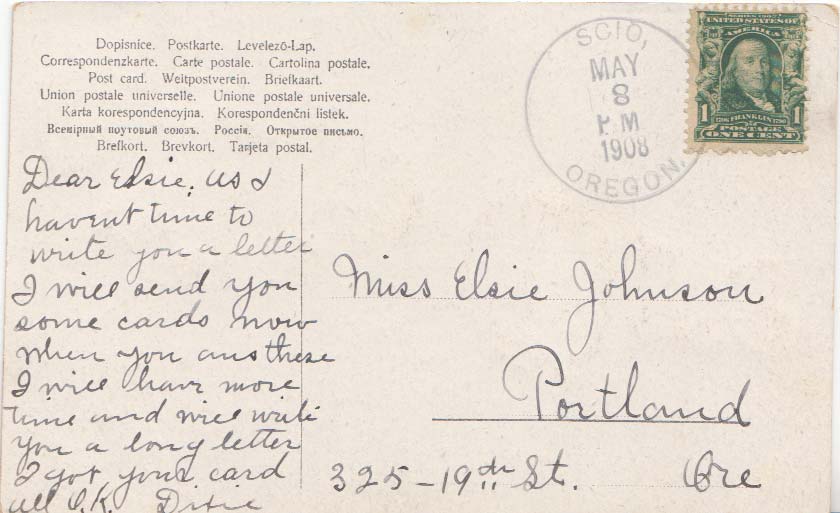 Dopisnice. Postkarte. Levelező-Lap.
Correspondenzkarte. Carte postale. Cartolina postale.
Post card. Weltpostverein. Briefkaart.
Union postale universelle. Unione postale universale.
Karta korespondencyjna. Korespondenční listek.
Всемірный поутовый союзъ. Россія. Открытое письмо.
Brefkort. Brevkort. Tarjeta postal.
SCIO,
MAY
8
P M
1908
OREGON.
SERIES 1902
UNITED STATES OF
AMERICA
1 FRANKLIN 1
POSTAGE
ONE CENT
Dear Elsie. as I
havent time to
write you a letter
I will send you
some cards now
when you ans these
I will have more
time and will write
you a long letter
I got your card
all O.K. Dixie
Miss Elsie Johnson
Portland
325-19th St. Ore